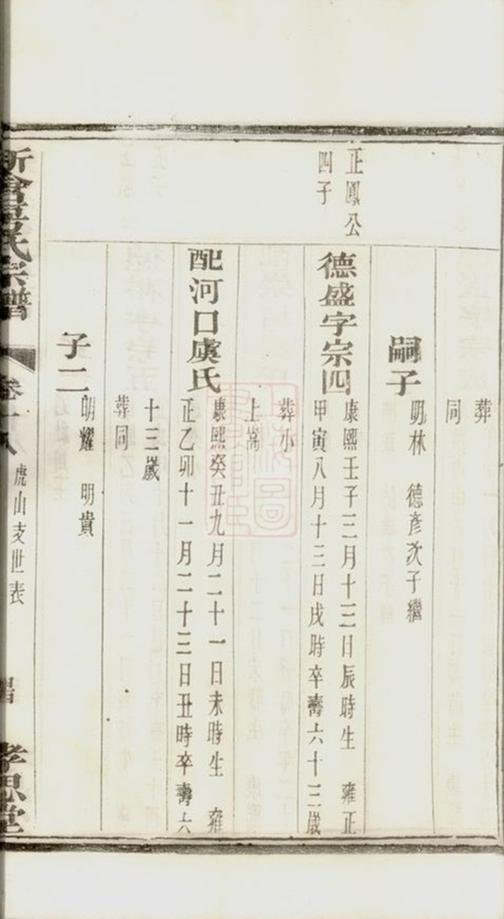 葬
同
嗣子 明林 德彥次子繼
正鳳公
四子
德盛字宗四 康熙壬子三月十三日辰時生 雍正
甲寅八月十三日戌時卒壽六十三歲
葬小
上嵩
配河口虞氏 康熙癸丑九月二十一日未時生 雍
正乙卯十一月二十三日丑時卒壽六
十三歲
葬同
子二 明耀 明貴
氏宗譜 卷十八 虎山支世表 孝思堂